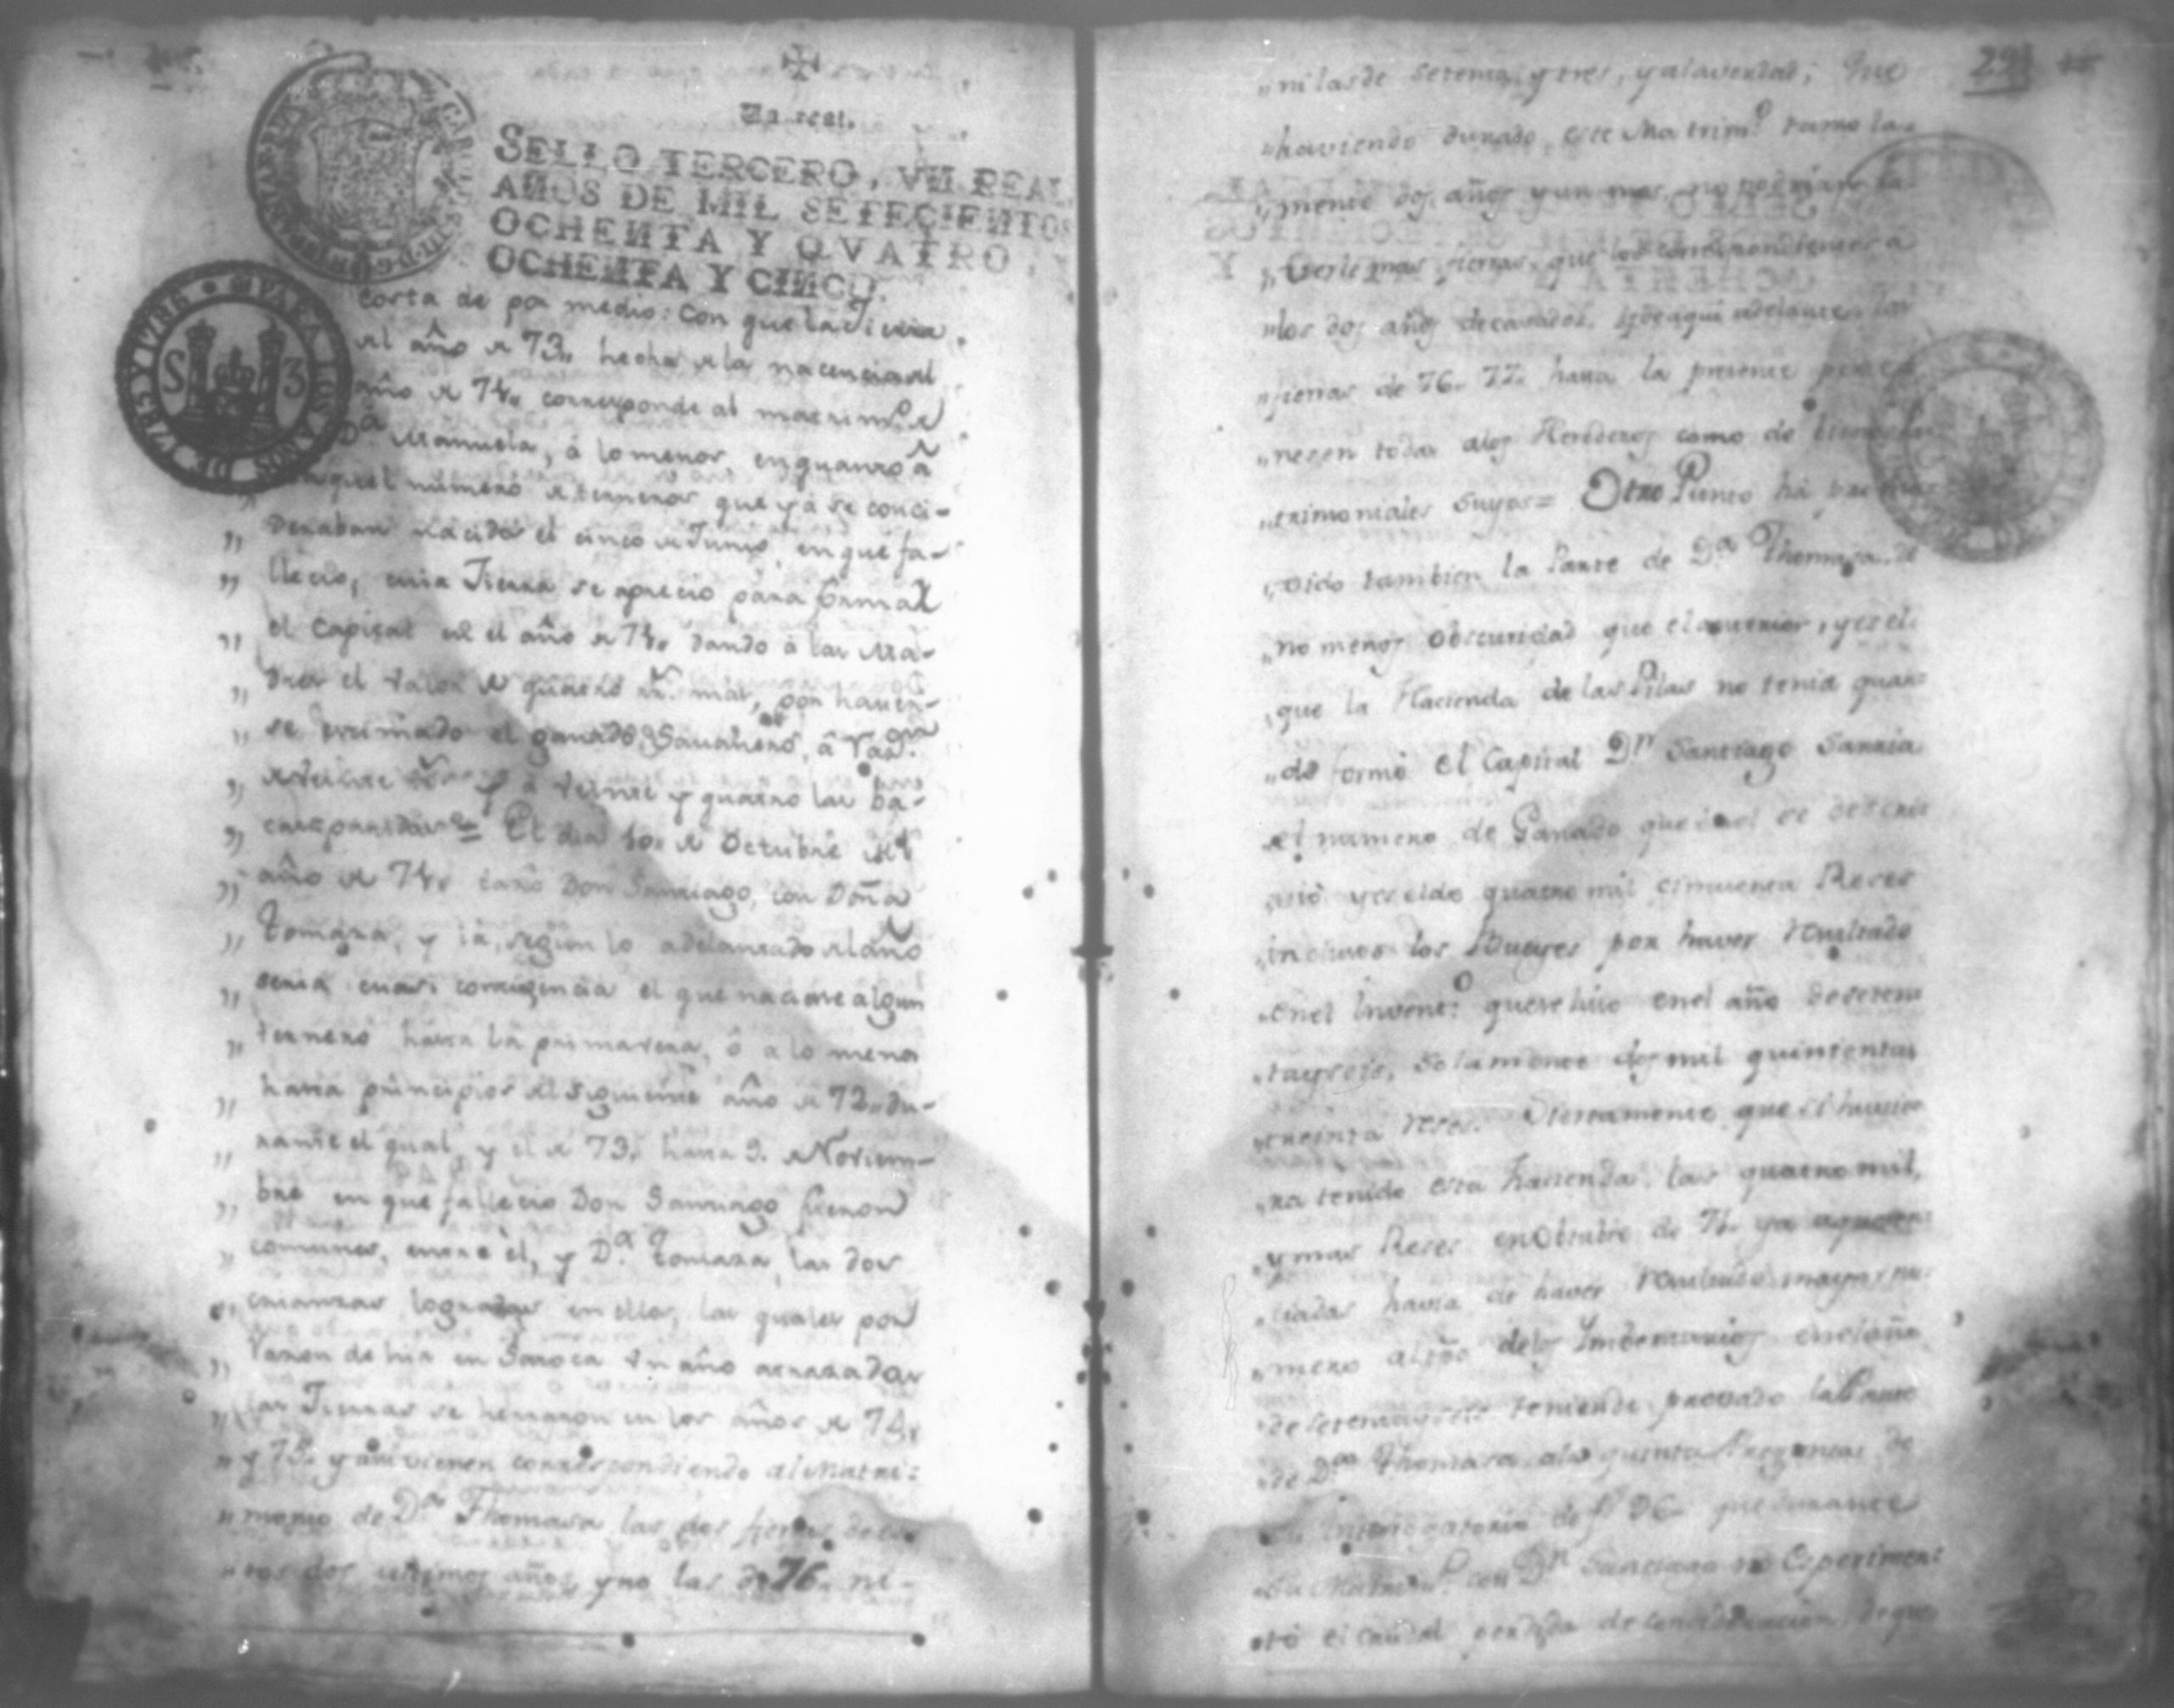 Un real.
SELLO TERCERO, VN REAL
AÑOS DE MIL SETECIENTOS
OCHENTA Y QVATRO, Y
OCHENTA Y CINCO.
PARA LOS AÑOS DE 1785 Y 1786
S 3
corta de por medio: con que la Tierra
el año de 73,, hecha de la nacencia del
año de 74,, corresponde al matrim.º de
D.ª Manuela, á lo menor, en quanto â
aquel número de terneros que yá se conci-
,, deraban nacidos el cinco de Junio, en que fa-
,, llecio, cuia Tierra se aprecio para formar
,, el Capital en el año de 74,, dando â las Ma-
,, dres el valor de quatro rr.s mas, por haver-
,, se estimado el ganado, Savanero, â
,, de veinte y â veinte y quatro las ba-
,, cas paridas = El dia 10,, de Octubre del
,, año de 74,, casó Don Santiago, con Doña
,, Tomasa, y ia, segun lo adelantado del año
,, seria cuasi contingencia el que naciese algun
,, ternero hasta la primavera, ô a lo menos
,, hasta principios del siguiente año de 72,, du-
,, rante el qual, y el de 73,, hasta 9. de Noviem-
,, bre en que fallecio Don Santiago fueron
,, comunes, entre èl, y D.ª Tomasa, las dos
,, crianzas logradas en ellos, las quales por
,, en Saroca un año atrasadas
,, las Tierras se herraron en los años de 74,,
,, y 75,, y asi vienen correspondiendo al Matri-
,, monio de D.ª Thomasa las dos fierras de es-
,, tos dos ultimos años, y no las de 76,, ni-
291
,, ni las de setenta, y tres, y a la verdad; Que
,, haviendo durado este Matrim.º tan sola-
,, mente dos años y un mes, no podrian to-
,, carle mas fierras, que los correspondientes a
,, los dos años de casados, y de aqui adelante las
,, fierras de 76,, 77,, hasta la presente perte-
,, necen todas a los Herederos como de bienes pa-
,, trimoniales suyos = Otro Punto há
,, dido tambien la Parte de D.ª Thomasa, de
,, no menos obscuridad que el anterior, y es el
,, que la Hacienda de las Pilas no tenia quan-
,, do formó el Capital D.n Santiago Sarria
,, el numero de Ganado que en el se
,, y es el de quatro mil cincuenta Reses
,, inclusos los Bueyes por haver resultado
,, en el Invent.º que se hizo en el año de seten-
,, ta y seis, solamente dos mil quinientas
,, treinta reses. Ciertamente que si huvie-
,, ra tenido esta hacienda las quatro mil,
,, y mas Reses en Otubre de 71,, ya
havia de haver resultado mayor nu-
,, mero al tpo de los Imbentarios en el año
,, de setenta y seis teniendo provado la Parte
,, de D.ª Thomasa a la quinta Pregunta de
,, su Interrogatorio de f.s que durante
,, su Matrim.º con D.n Santiago no esperimen-
,, tó el caudal perdida de consideracion, de que